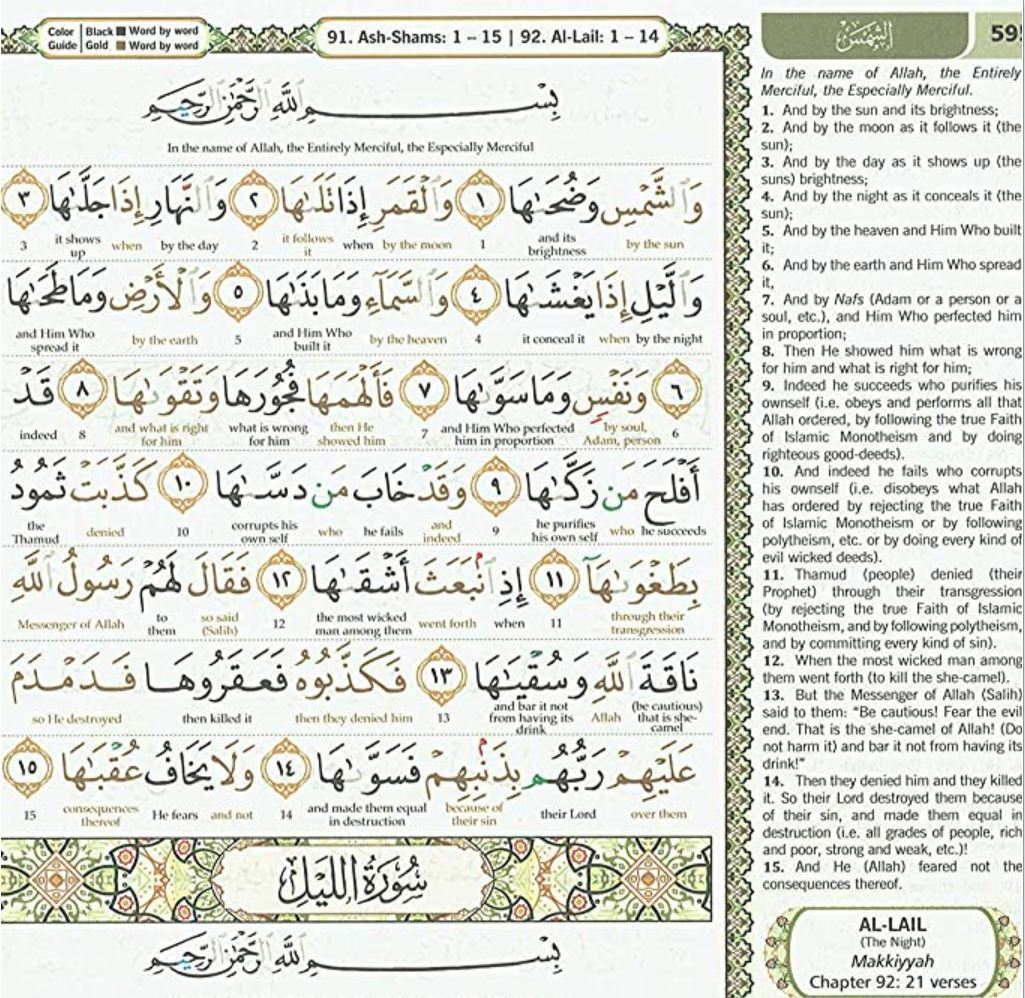 Color Guide | Black Word by word
Gold Word by word
91. Ash-Shams: 1 – 15 | 92. Al-Lail: 1 – 14
بِسْمِ اللَّهِ الرَّحْمَٰنِ الرَّحِيمِ
In the name of Allah, the Entirely Merciful, the Especially Merciful
وَٱلشَّمْسِ وَضُحَىٰهَا ١ وَٱلْقَمَرِ إِذَا تَلَىٰهَا ٢ وَٱلنَّهَارِ إِذَا جَلَّىٰهَا ٣
by the sun and its brightness 1 by the moon when it follows it 2 by the day when it shows up 3
وَٱلَّيْلِ إِذَا يَغْشَىٰهَا ٤ وَٱلسَّمَآءِ وَمَا بَنَىٰهَا ٥ وَٱلْأَرْضِ وَمَا طَحَىٰهَا
by the night when it conceal it 4 by the heaven and Him Who built it 5 by the earth and Him Who spread it
٦ وَنَفْسٍ وَمَا سَوَّىٰهَا ٧ فَأَلْهَمَهَا فُجُورَهَا وَتَقْوَىٰهَا ٨ قَدْ
6 by soul, Adam, person and Him Who perfected him in proportion 7 then He showed him what is wrong for him and what is right for him 8 indeed
أَفْلَحَ مَن زَكَّىٰهَا ٩ وَقَدْ خَابَ مَن دَسَّىٰهَا ١٠ كَذَّبَتْ ثَمُودُ
he succeeds who he purifies his own self 9 and indeed he fails who corrupts his own self 10 denied the Thamud
بِطَغْوَىٰهَآ ١١ إِذِ ٱنۢبَعَثَ أَشْقَىٰهَا ١٢ فَقَالَ لَهُمْ رَسُولُ ٱللَّهِ
through their transgression 11 when went forth the most wicked man among them 12 so said (Salih) to them Messenger of Allah
نَاقَةَ ٱللَّهِ وَسُقْيَىٰهَا ١٣ فَكَذَّبُوهُ فَعَقَرُوهَا فَدَمْدَمَ
(be cautious) that is she-camel Allah and bar it not from having its drink 13 then they denied him then killed it so He destroyed
عَلَيْهِمْ رَبُّهُم بِذَنۢبِهِمْ فَسَوَّىٰهَا ١٤ وَلَا يَخَافُ عُقْبَىٰهَا ١٥
over them their Lord because of their sin and made them equal in destruction 14 and not He fears consequences thereof 15
سُورَةُ اللَّيْلِ
بِسْمِ اللَّهِ الرَّحْمَٰنِ الرَّحِيمِ
الشَّمْسِ
In the name of Allah, the Entirely
Merciful, the Especially Merciful.
1. And by the sun and its brightness;
2. And by the moon as it follows it (the
sun);
3. And by the day as it shows up (the
suns) brightness;
4. And by the night as it conceals it (the
sun);
5. And by the heaven and Him Who built
it;
6. And by the earth and Him Who spread
it,
7. And by Nafs (Adam or a person or a
soul, etc.), and Him Who perfected him
in proportion;
8. Then He showed him what is wrong
for him and what is right for him;
9. Indeed he succeeds who purifies his
ownself (i.e. obeys and performs all that
Allah ordered, by following the true Faith
of Islamic Monotheism and by doing
righteous good-deeds).
10. And indeed he fails who corrupts
his ownself (i.e. disobeys what Allah
has ordered by rejecting the true Faith
of Islamic Monotheism or by following
polytheism, etc. or by doing every kind of
evil wicked deeds).
11. Thamud (people) denied (their
Prophet) through their transgression
(by rejecting the true Faith of Islamic
Monotheism, and by following polytheism,
and by committing every kind of sin).
12. When the most wicked man among
them went forth (to kill the she-camel).
13. But the Messenger of Allah (Salih)
said to them: "Be cautious! Fear the evil
end. That is the she-camel of Allah! (Do
not harm it) and bar it not from having its
drink!"
14. Then they denied him and they killed
it. So their Lord destroyed them because
of their sin, and made them equal in
destruction (i.e. all grades of people, rich
and poor, strong and weak, etc.)!
15. And He (Allah) feared not the
consequences thereof.
AL-LAIL
(The Night)
Makkiyyah
Chapter 92: 21 verses